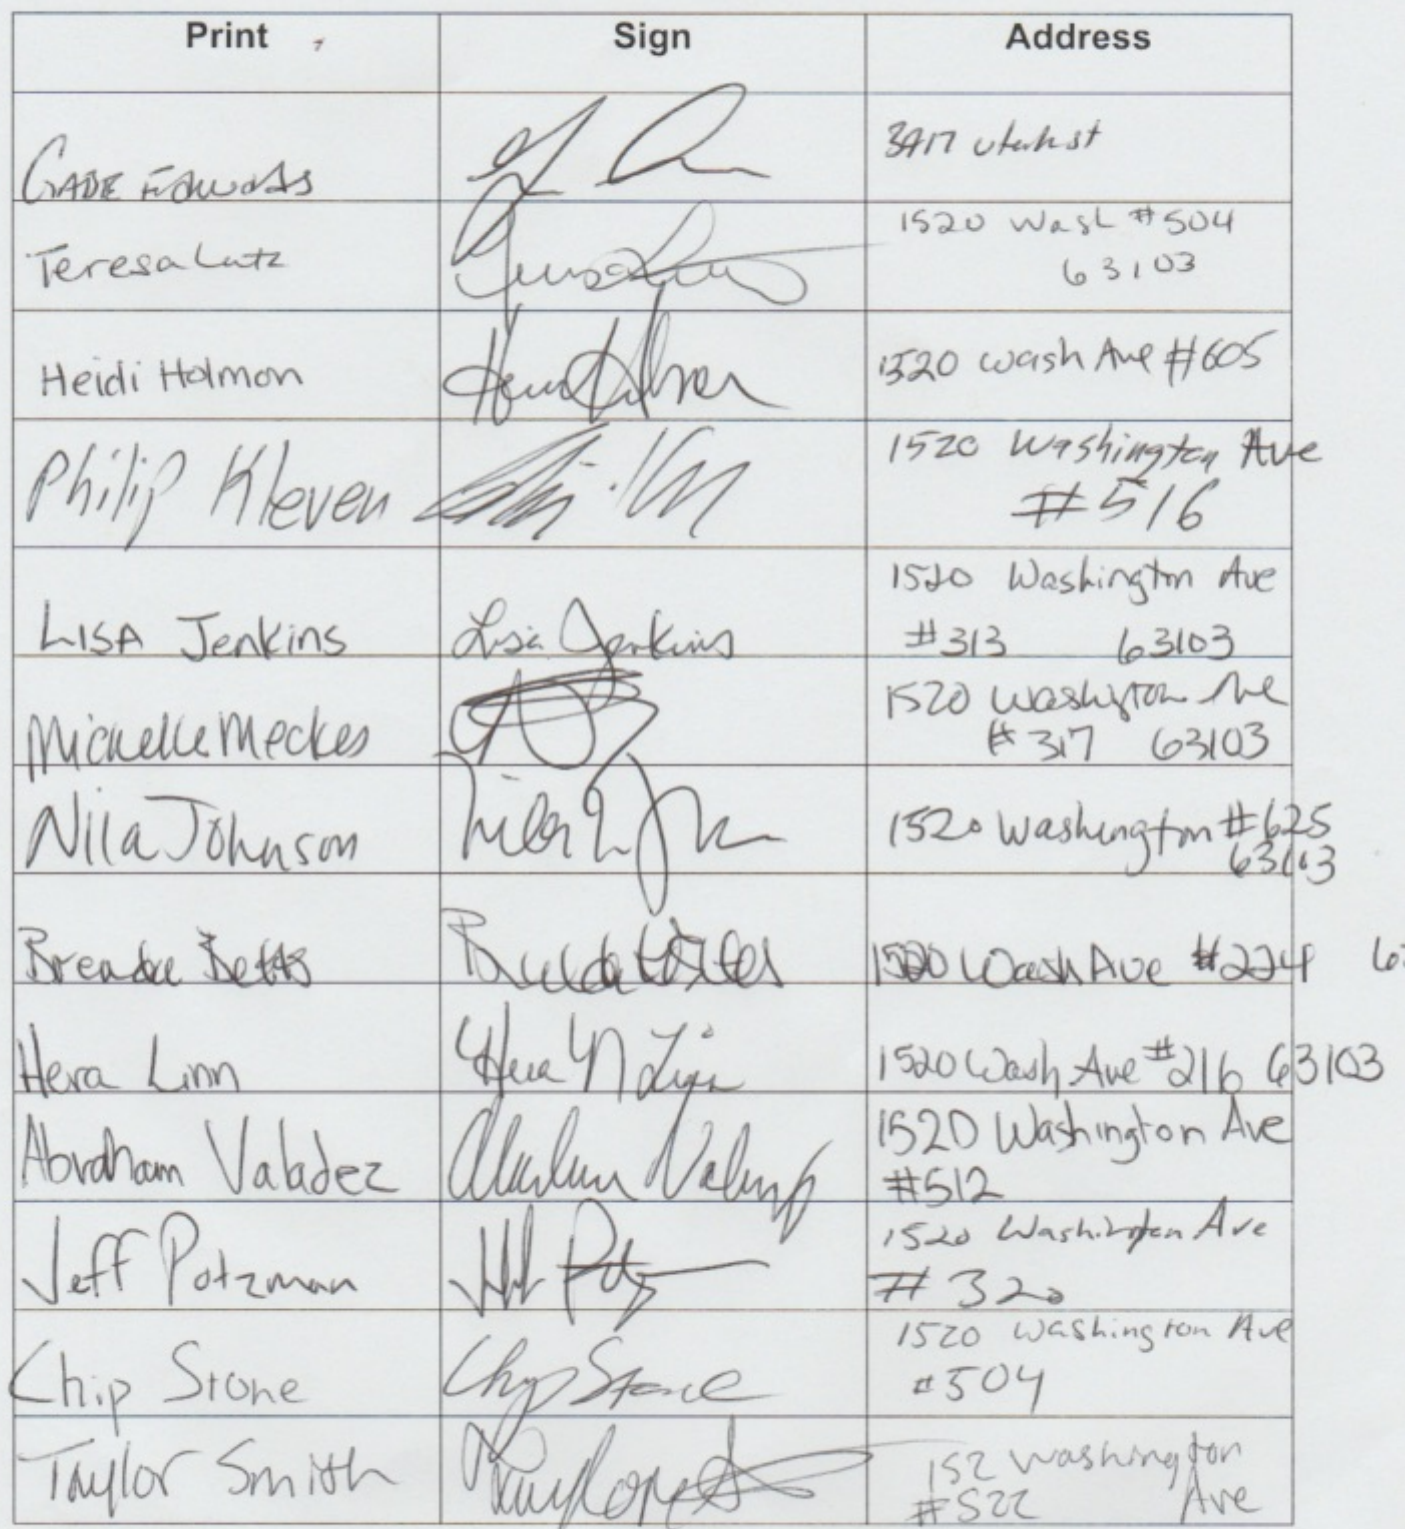 Print Sign Address
GABE Edwards 3417 Utah st
Teresa Lutz 1520 Wash #504
63103
Heidi Holmon 1520 Wash Ave #605
Philip Kleven 1520 Washington Ave
#516
LISA Jenkins Lisa Jenkins 1520 Washington Ave
#313 63103
Michelle Meckes 1520 Washington Ave
#317 63103
Nila Johnson 1520 Washington #625
63103
Brenda Betts 1520 Wash Ave #224 63
Hera Linn Hera N Linn 1520 Wash Ave #216 63103
Abraham Valadez 1520 Washington Ave
#512
Jeff Potzman 1520 Washington Ave
#320
Chip Stone Chip Stone 1520 Washington Ave
#504
Taylor Smith Taylor 152 Washington
#522 Ave